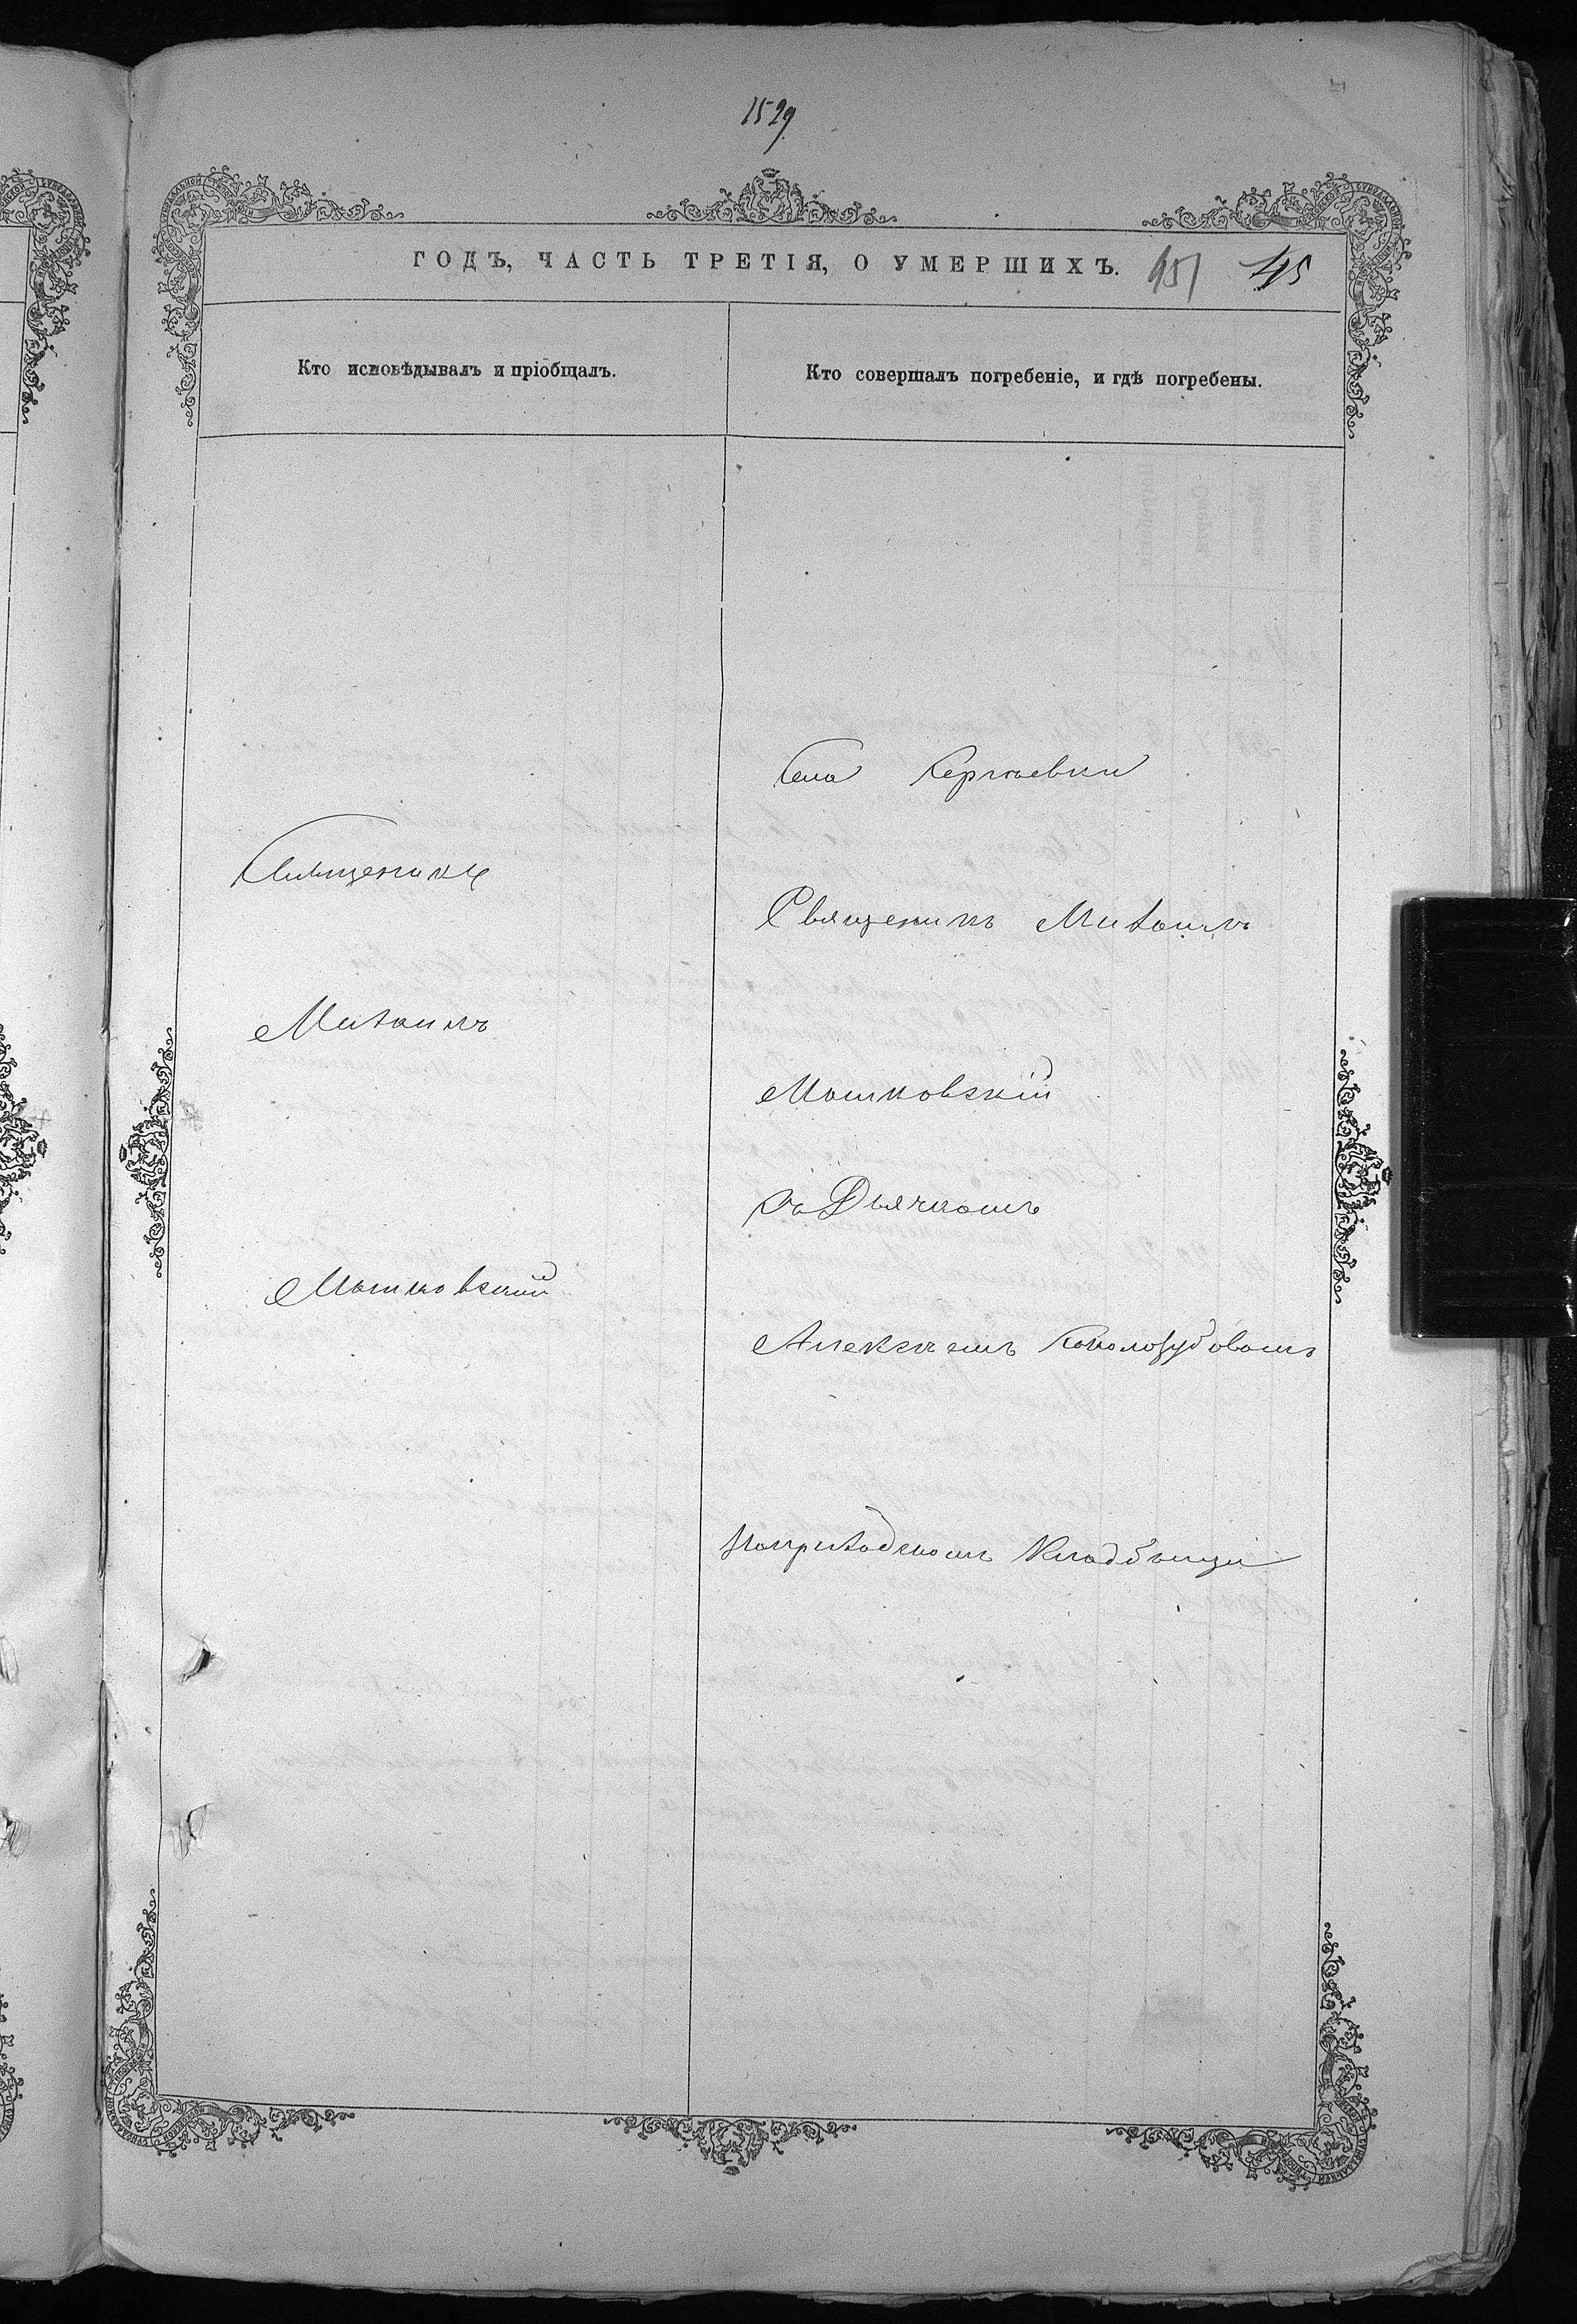 1529
ГОДЪ, ЧАСТЬ ТРЕТІЯ, О УМЕРШИХЪ. 451 45
Кто исповѣдывалъ и пріобщалъ.
Кто совершалъ погребеніе, и гдѣ погребены.
Священикъ
Михаилъ
Мошковскій
Села Сергѣевки
Священикъ Михаилъ
Мошковскій
съ Дьячкомъ
Алексѣемъ Сокологубовымъ
Наприходскомъ Кладбищи